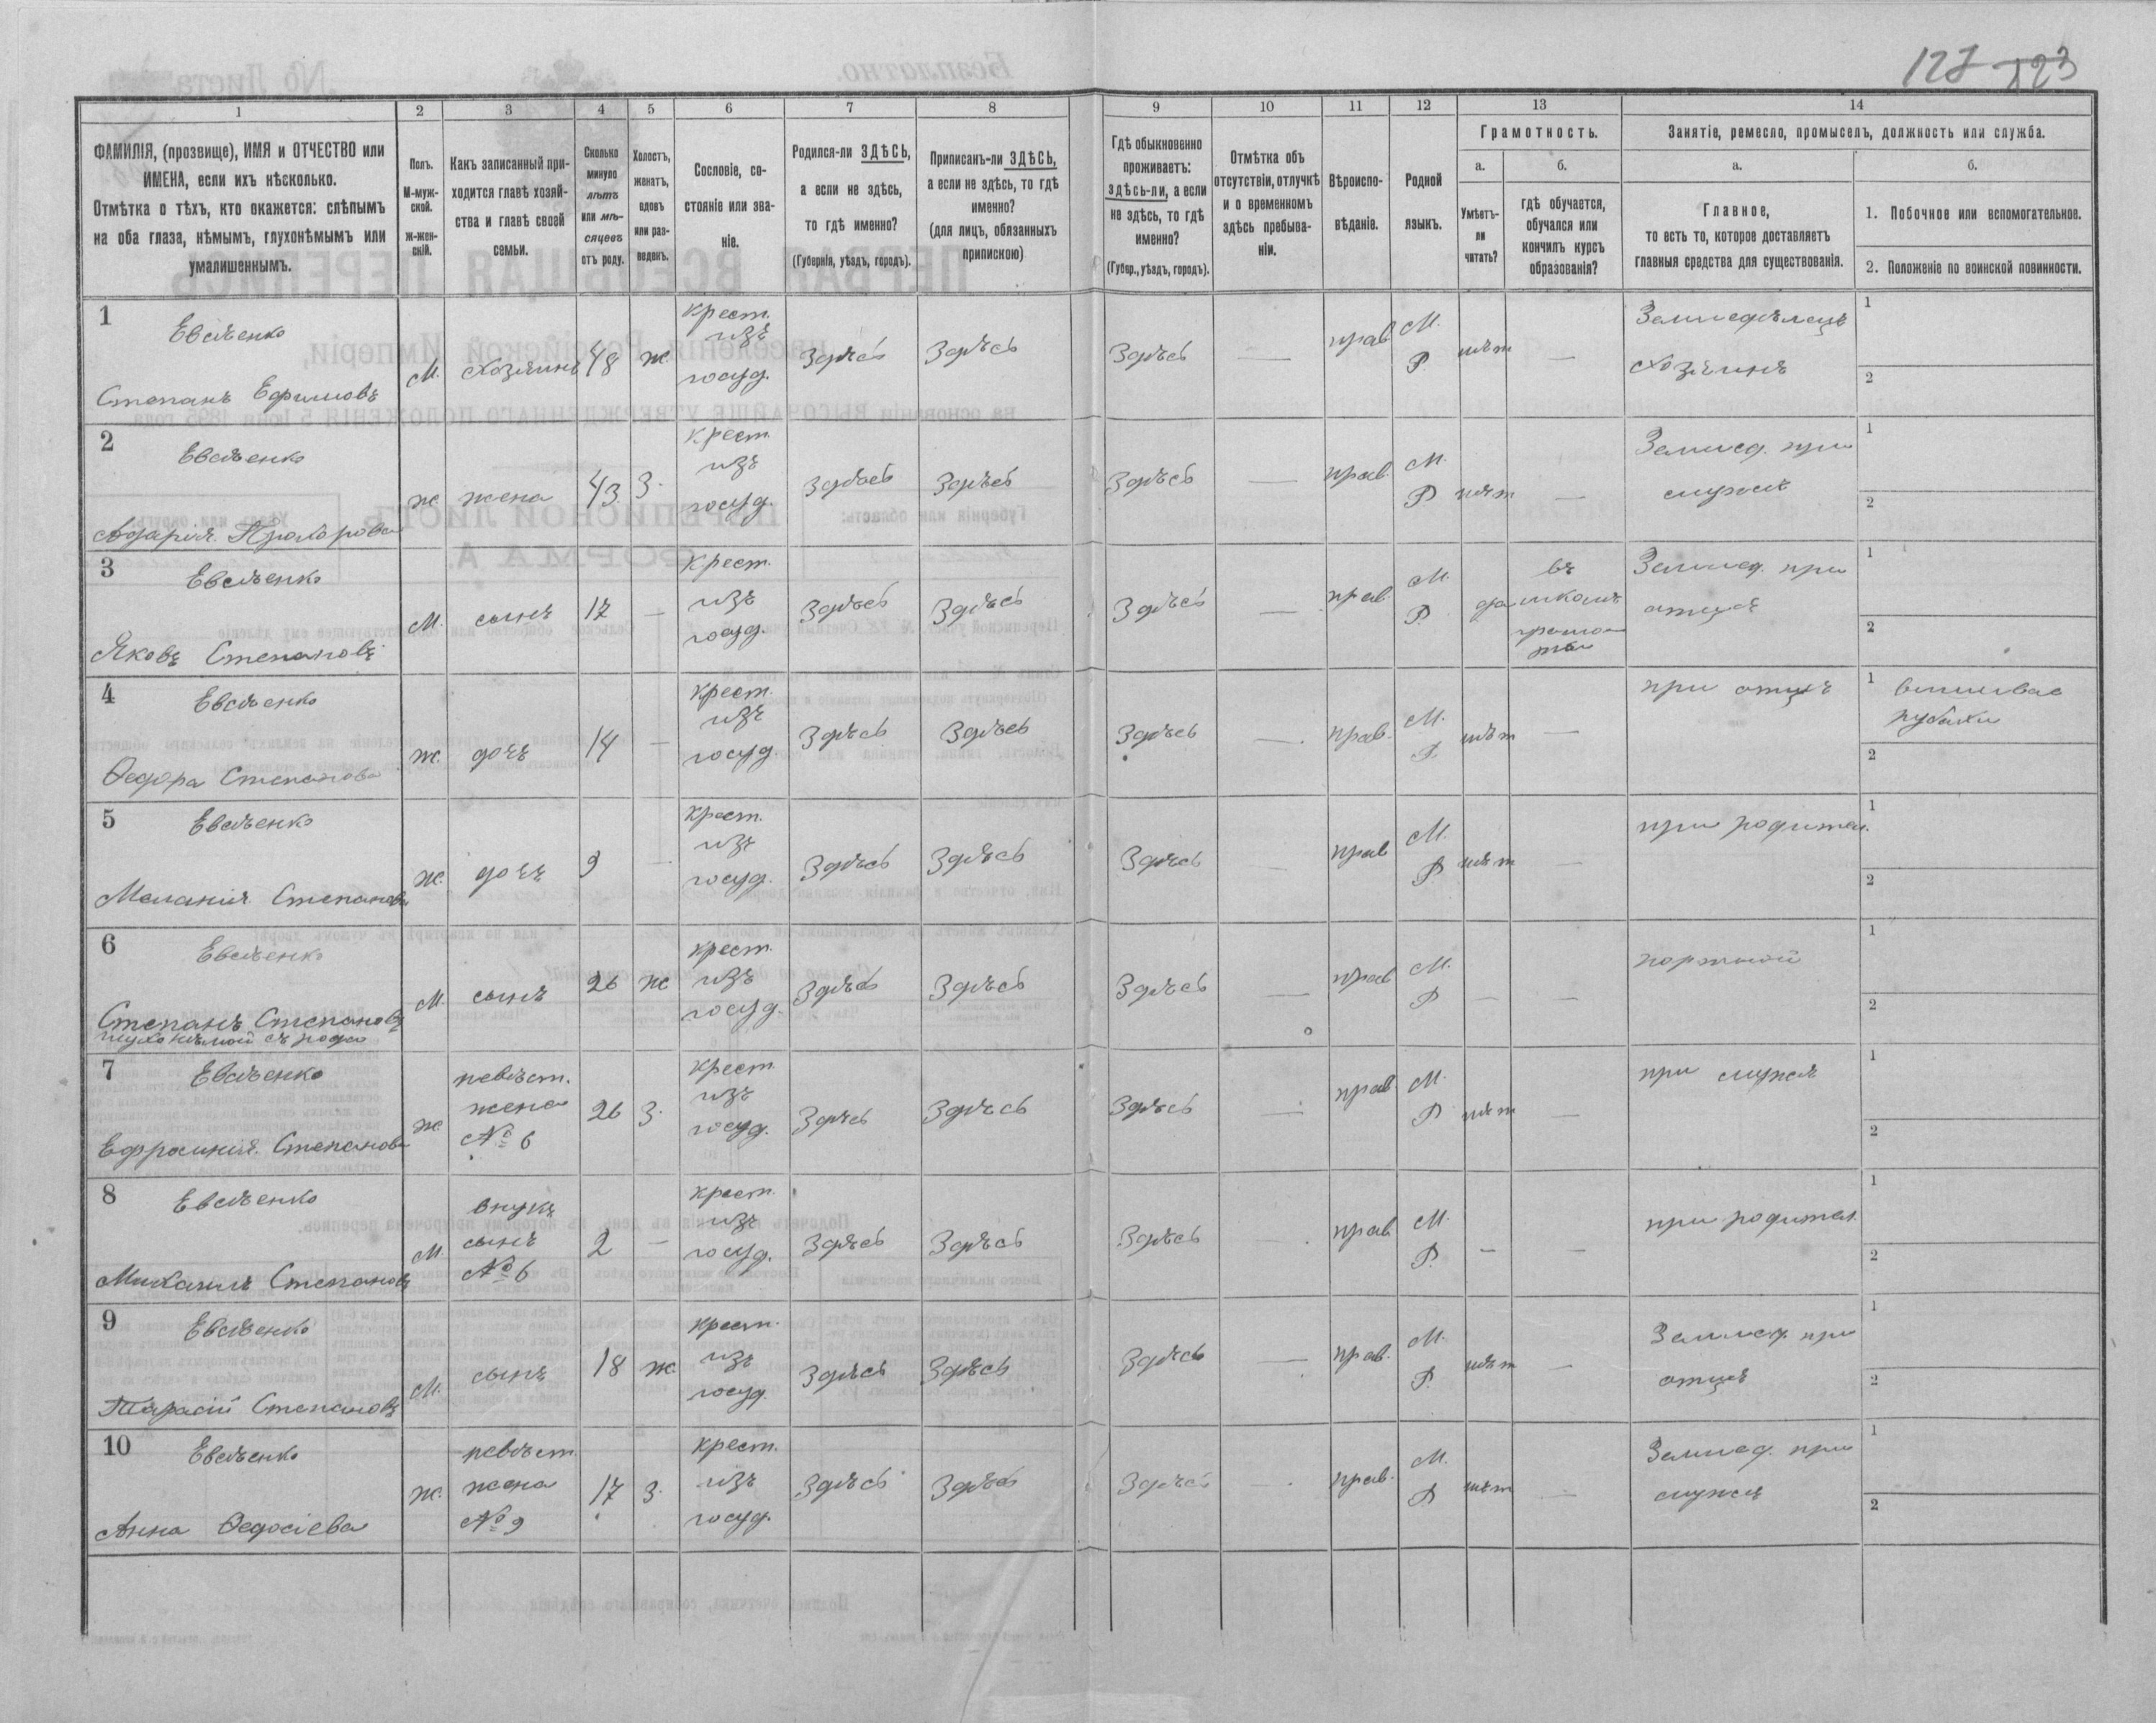 123
1
2
3
4
5
6
7
8
9
10
11
12
13
14
ФАМИЛІЯ, (прозвище), ИМЯ и ОТЧЕСТВО или
ИМЕНА, если ихъ нѣсколько.
Отмѣтка о тѣхъ, кто окажется: слѣпымъ
на оба глаза, нѣмымъ, глухонѣмымъ или
умалишеннымъ.
Полъ.
М-муж-
ской.
Ж-жен-
скій.
Какъ записанный при-
ходится главѣ хозяй-
ства и главѣ своей
семьи.
Сколько
минуло
лѣтъ
или мѣ-
сяцевъ
отъ роду.
Холостъ,
женатъ,
вдовъ
или раз-
веденъ.
Сословіе, со-
стояніе или зва-
ніе.
Родился-ли ЗДѢСЬ,
а если не здѣсь,
то гдѣ именно?
(Губернія, уѣздъ, городъ).
Приписанъ-ли ЗДѢСЬ,
а если не здѣсь, то гдѣ
именно?
(для лицъ, обязанныхъ
припискою)
Гдѣ обыкновенно
проживаетъ:
здѣсь-ли, а если
не здѣсь, то гдѣ
именно?
(Губер., уѣздъ, городъ).
Отмѣтка объ
отсутствіи, отлучкѣ
и о временномъ
здѣсь пребыва-
ніи.
Вѣроиспо-
вѣданіе.
Родной
языкъ.
Грамотность.
а.
Умѣетъ-
ли
читать?
б.
гдѣ обучается,
обучался или
кончилъ курсъ
образованія?
Занятіе, ремесло, промыселъ, должность или служба.
а.
Главное,
то есть то, которое доставляетъ
главныя средства для существованія.
б.
1. Побочное или вспомогательное.
2. Положеніе по воинской повинности.
1 Евсѣенко
Степанъ Ефимовъ
М. хозяинъ 48 ж. крест. изъ госуд. Здѣсь Здѣсь Здѣсь — прав М. Р. нѣт — Земледѣлецъ хозяинъ 1 2
2 Евсѣенко
ж жена 43 З. крест. изъ госуд. Здѣсь Здѣсь Здѣсь — прав. М. Р нѣт — Землед. при мужѣ 1 2
3 Евсѣенко
Яковъ Степановъ
М. сынъ 17 — крест. изъ госуд. Здѣсь Здѣсь Здѣсь — прав. М. Р. да въ школѣ грамоты Землед. при отцѣ 1 2
4 Евсѣенко
Ѳедора Степанова
ж. дочь 14 — крест. изъ госуд. Здѣсь Здѣсь Здѣсь — прав. М. Р. нѣт — при отцѣ 1 рубахи 2
5 Евсѣенко
Меланія Степанова
ж. дочь 9 — крест. изъ госуд. Здѣсь Здѣсь Здѣсь — прав М. Р. нѣт — при родител. 1 2
6 Евсѣенко
Степанъ Степановъ
глухонѣмой съ роду
М. сынъ 26 ж крест. изъ госуд. Здѣсь Здѣсь Здѣсь — прав М. Р — — портной 1 2
7 Евсѣенко
Степанова
ж. невѣст. жена № 6 26 З. крест изъ госуд. Здѣсь Здѣсь Здѣсь — прав М. Р нѣт — при мужѣ 1 2
8 Евсѣенко
Михаилъ Степановъ
М. внукъ сынъ № 6 2 — крест. изъ госуд. Здѣсь Здѣсь Здѣсь прав М. Р. — — при родител. 1 2
9 Евсѣенко
Тарасій Степановъ
М. сынъ 18 ж. крест. изъ госуд. Здѣсь Здѣсь Здѣсь — прав. М. Р. нѣт — Землед. при отцѣ 1 2
10 Евсѣенко
Анна Ѳедосіева
ж. невѣст жена № 9 17 З. крест. изъ госуд. Здѣсь Здѣсь Здѣсь — прав. М. Р нѣт — Землед. при мужѣ 1 2